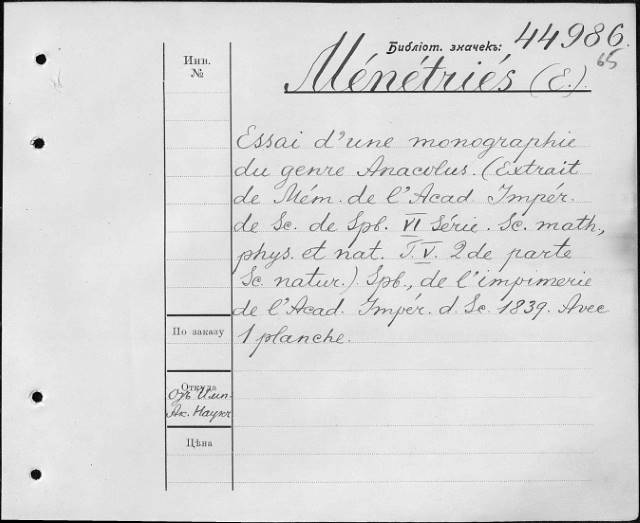 Библіот. значекъ: 44986.
65
Инв.
№
Ménétriés (E.)
Essai d'une monographie
du genre Anacolus. (Extrait
de Mém. de l'Acad Impér.
de Sc. de Spb. VI Série. Sc. math,
phys. et nat. T. V. 2 de parte
Sc. natur.) Spb., de l'impimerie
de l'Acad. Impér. d. Sc. 1839. Avec
1 planche.
По заказу
Откуда
Отъ Имп.
Ак. Наукъ
Цѣна